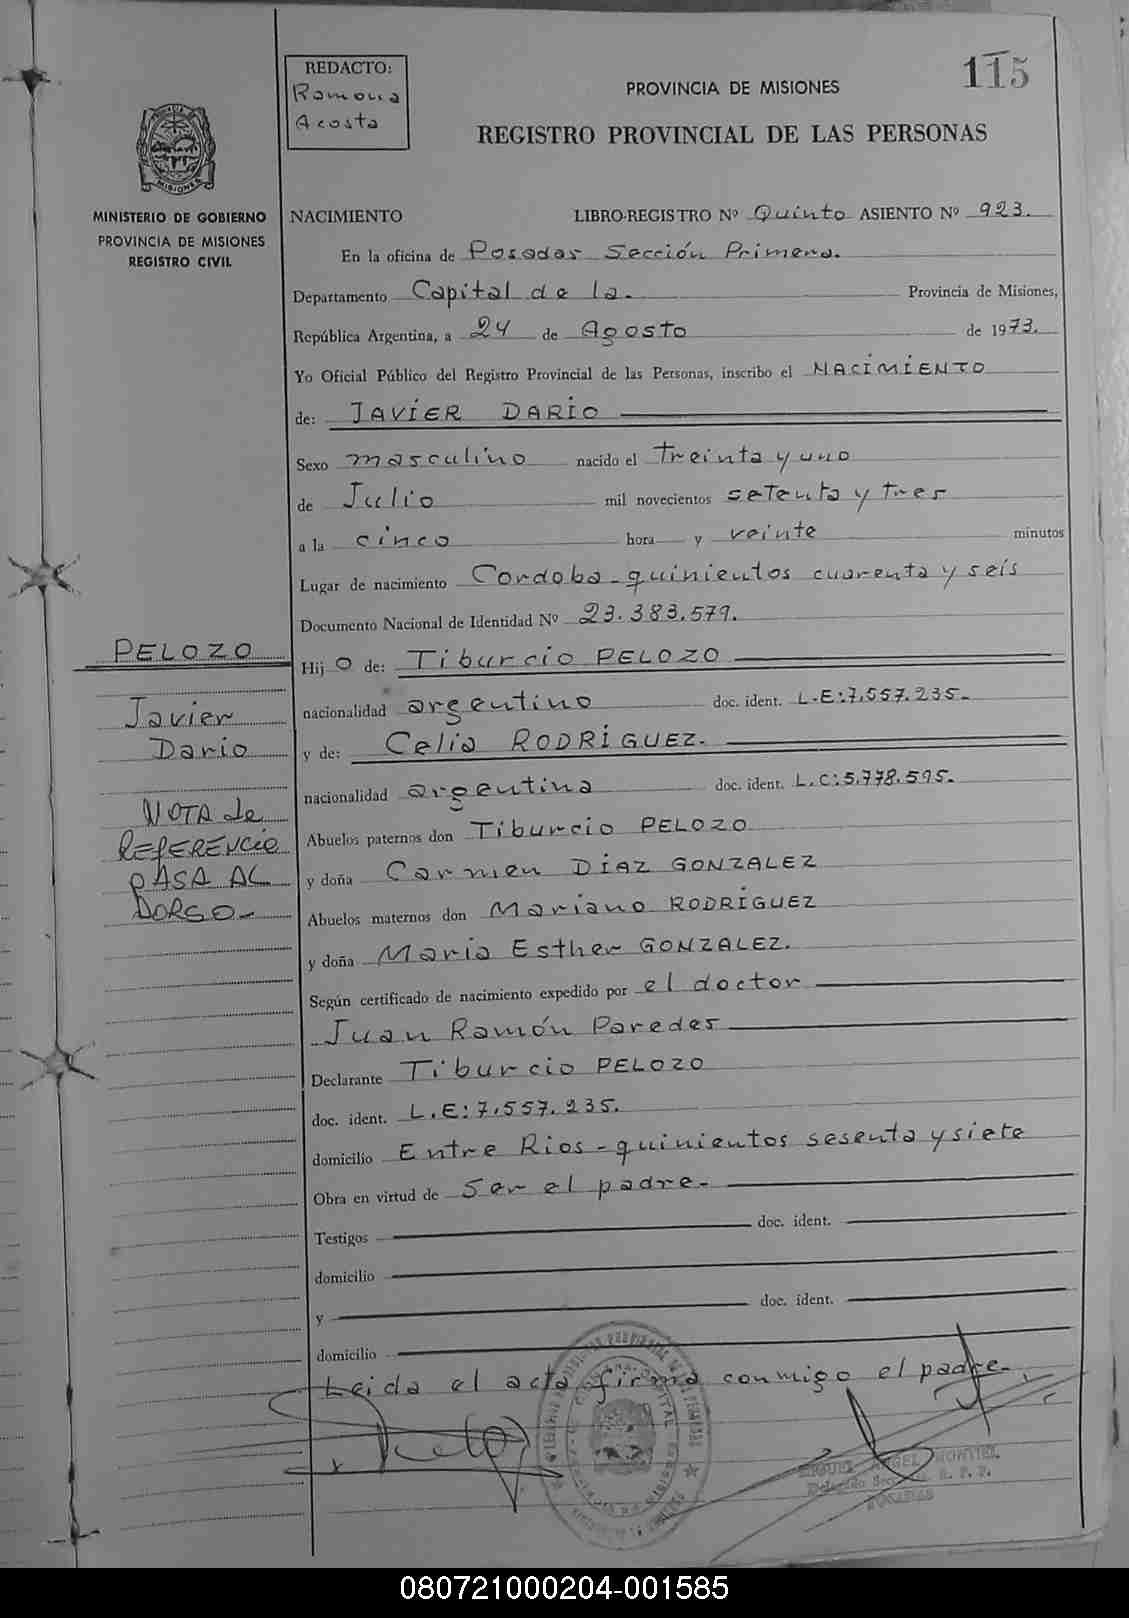 115
REDACTO:
Ramona
Acosta
PROVINCIA DE MISIONES
REGISTRO PROVINCIAL DE LAS PERSONAS
MISIONES
MINISTERIO DE GOBIERNO
PROVINCIA DE MISIONES
REGISTRO CIVIL
NACIMIENTO LIBRO-REGISTRO Nº Quinto ASIENTO Nº 923.
En la oficina de Posadas Sección Primera.
Departamento Capital de la. Provincia de Misiones,
República Argentina, a 24 de Agosto de 1973.
Yo Oficial Público del Registro Provincial de las Personas, inscribo el NACIMIENTO
de: JAVIER DARIO
Sexo masculino nacido el treinta y uno
de Julio mil novecientos setenta y tres
a la cinco hora y veinte minutos
Lugar de nacimiento Cordoba - quinientos cuarenta y seis
Documento Nacional de Identidad Nº 23.383.579.
PELOZO
Hij o de: Tiburcio PELOZO
nacionalidad argentino doc. ident. L.E:7.557.235.-
Javier
Dario
y de: Celia RODRÍGUEZ.
nacionalidad argentina doc. ident. L.C:5.778.595.
NOTA de
REFERENCIA
PASA AL
DORSO-
Abuelos paternos don Tiburcio PELOZO
y doña Carmen DÍAZ GONZALEZ
Abuelos maternos don Mariano RODRÍGUEZ
y doña María Esther GONZALEZ.
Según certificado de nacimiento expedido por el doctor
Juan Ramón Paredes
Declarante Tiburcio PELOZO
doc. ident. L.E:7.557.235.
domicilio Entre Rios - quinientos sesenta y siete
Obra en virtud de Ser el padre.-
Testigos doc. ident.
domicilio
y doc. ident.
domicilio
Leida el acta firma conmigo el padre.
MIGUEL ANGEL MONTIEL
080721000204-001585